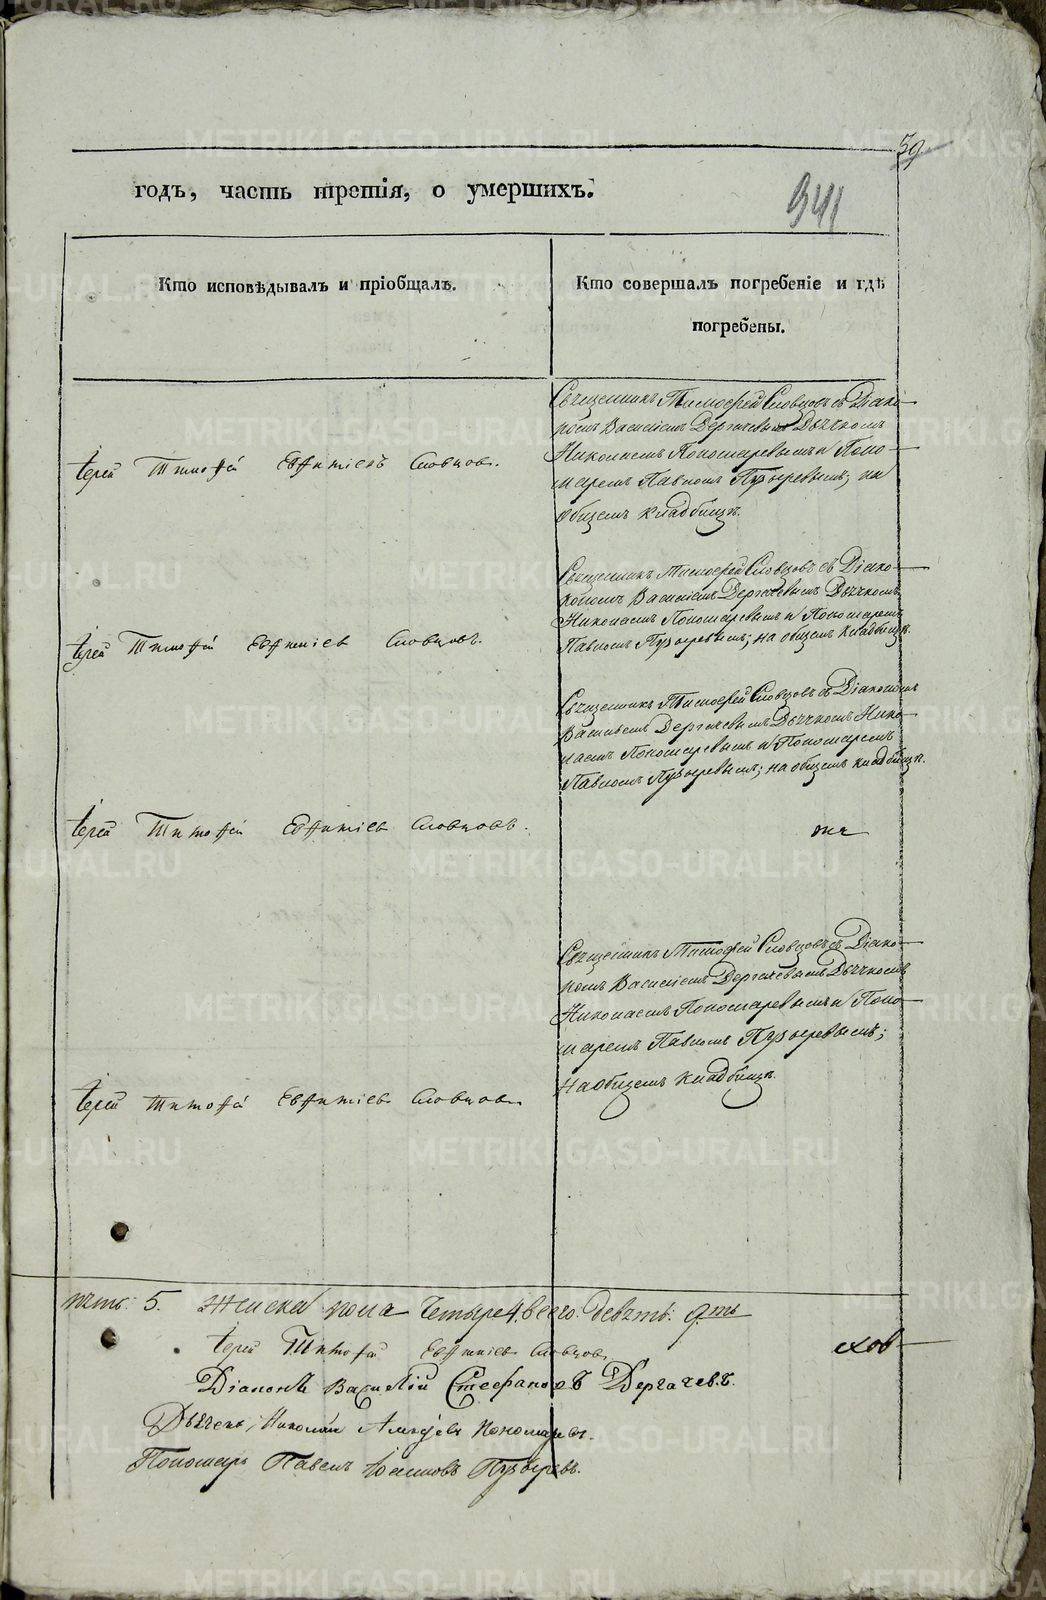 59
годъ, часть третія, о умершихъ.
941
Кто исповѣдывалъ и пріобщалъ.
Кто совершалъ погребеніе и гдѣ
погребены.
Священникъ Тимофей Словцовъ съ Діако-
номъ Василіемъ Дергачевымъ Дьячкомъ
Николаемъ Пономаревымъ и Поно-
маремъ Павломъ Пузыревымъ; на
общемъ кладбищѣ.
Іерей Тимофей Евфиміевъ Словцовъ.
Священникъ Тимофей Словцовъ съ Діако-
кономъ Василіемъ Дергачевымъ Дьячкомъ
Николаемъ Пономаревымъ и Пономаремъ
Павломъ Пузыревымъ; на общемъ кладбищѣ.
Іерей Тимофей Евфиміевъ Словцовъ.
Священникъ Тимофей Словцовъ съ Діакономъ
Василіемъ Дергачевымъ Дьячкомъ Нико-
лаемъ Пономаревымъ и Пономаремъ
Павломъ Пузыревымъ; на общемъ кладбищѣ.
Іерей Тимофей Евфиміевъ Словцовъ.
Священникъ Тимофей Словцовъ съ Діако-
номъ Василіемъ Дергачевымъ Дьячкомъ
Николаемъ Пономаревымъ и Поно-
маремъ Павломъ Пузыревымъ;
на общемъ кладбищѣ.
Іерей Тимофей Евфиміевъ Словцовъ.
пять: 5. Женска пола четыре 4. всего. девять: 9.ть
Іерей Тимофей Евфиміевъ Словцовъ
Діаконъ Василій Стефановъ Дергачевъ.
Дьячекъ Николай Пономаревъ.
Пономарь Павелъ Пузыревъ.
METRIKI.GASO-URAL.RU